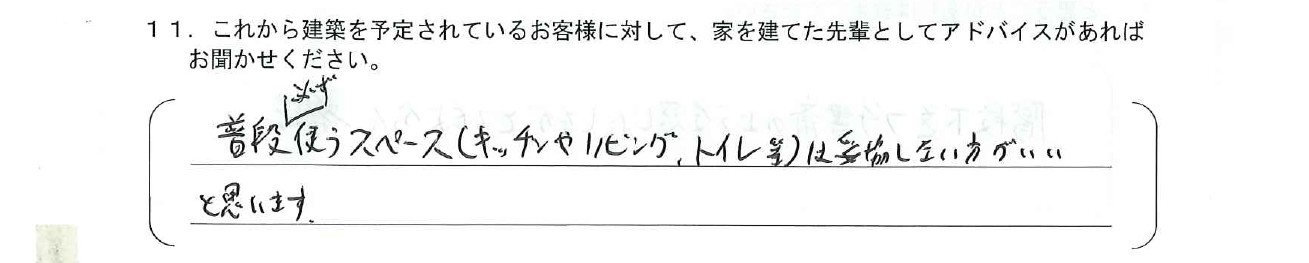 １１．これから建築を予定されているお客様に対して、家を建てた先輩としてアドバイスがあれば
お聞かせください。
必ず
普段使うスペース(キッチンやリビング、トイレ等)は妥協しない方がいい
と思います。